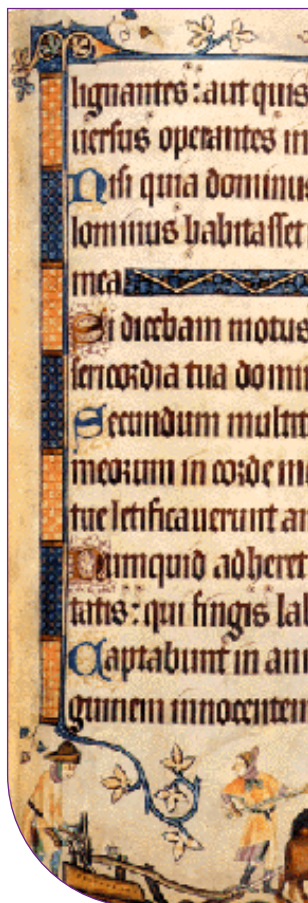 lignantes : aut quis
uersus operantes in
Nisi quia dominus
lominus habitasset
mea
Si dicebam motus
sericordia tua domin
Secundum multit
meorum in corde m
tue letificauerunt an
Numquid adheret
tatis : qui fingis lab
Captabunt in ani
guinem innocentem